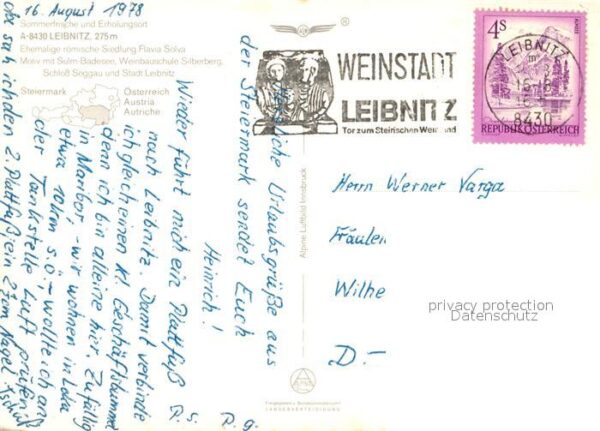 16. August 1978
Sommerfrische und Erholungsort
A-8430 LEIBNITZ, 275 m
Ehemalige römische Siedlung Flavia Solva
Motiv mit Sulm-Badesee, Weinbauschule Silberberg,
Schloß Seggau und Stadt Leibnitz
Steiermark
Österreich
Austria
Autriche
®
WEINSTADT
LEIBNITZ
Tor zum Steirischen Weinland
LEIBNITZ
8430
4S
REPUBLIK ÖSTERREICH
Alpine Luftbild Innsbruck
Herrn Werner Varga
Fräulen
Wilhe
D.-
privacy protection
Datenschutz
Urlaubsgrüße aus
der Steiermark sendet Euch
Heinrich!
Wieder führt mich ein Plattfuß
nach Leibnitz. Damit verbinde
ich gleich einen kl. Geschäftsbummel
denn ich bin alleine hier. Zufällig
in Maribor - wir wohnen in
etwa 10km s.ö. - wollte ich an
der Tankstelle Luft prüfen,
sah ich den 2. Plattfuß ein 2 mm Nagel
P.S.
LANDESVERTEIDIGUNG